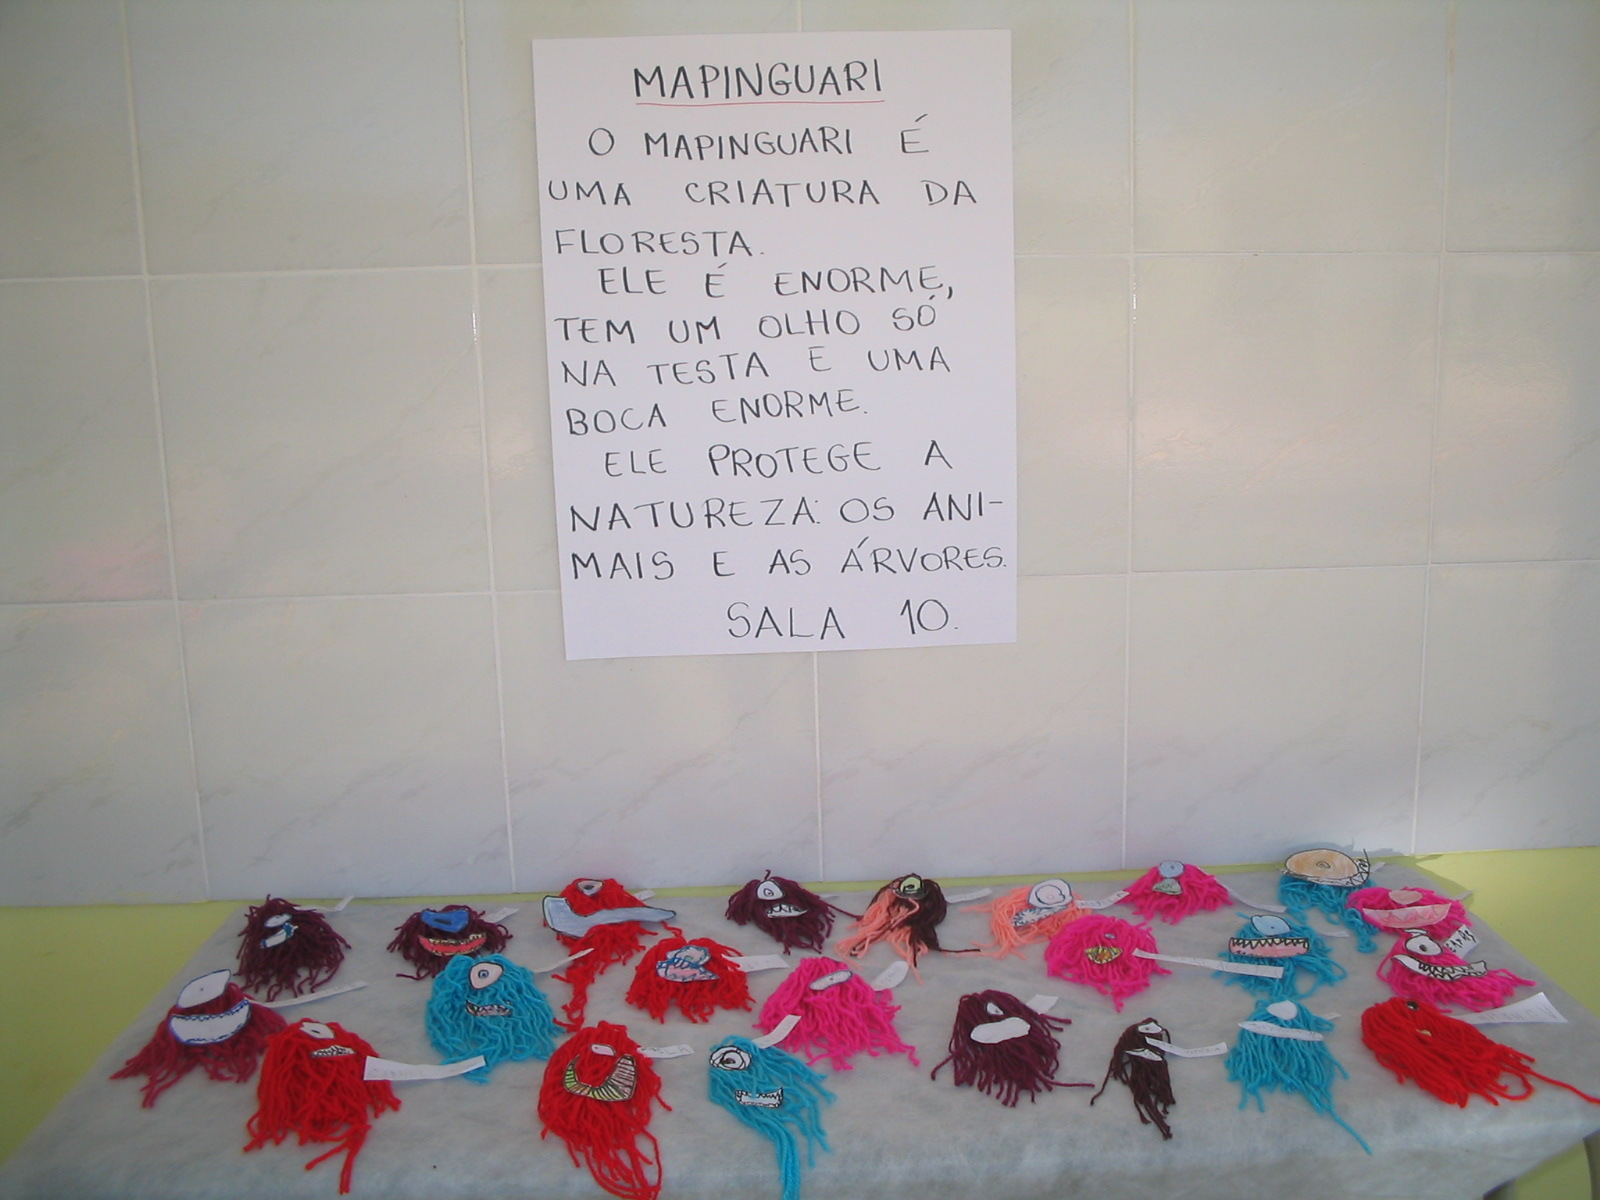 MAPINGUARI
O MAPINGUARI É
UMA CRIATURA DA
FLORESTA.
ELE É ENORME,
TEM UM OLHO SÓ
NA TESTA E UMA
BOCA ENORME.
ELE PROTEGE A
NATUREZA: OS ANI-
MAIS E AS ÁRVORES.
SALA 10.